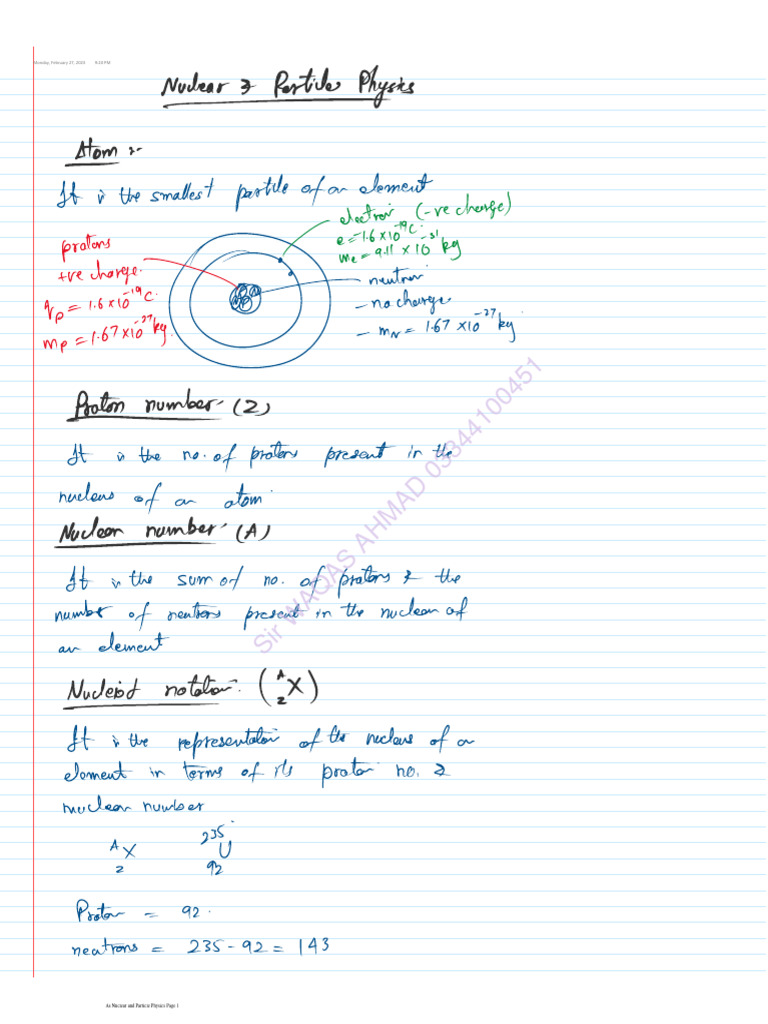 Monday, February 27, 2023 9:25 PM
Nuclear & Particle Physics
Atom :-
It is the smallest partile of an element
electron (-ve charge)
e = -1.6 x 10^-19 C.
me = 9.11 x 10^-31 kg
protons
+ve charge.
qp = 1.6 x 10^-19 C.
mp = 1.67 x 10^-27 kg.
neutron
- no charge
- mN = 1.67 x 10^-27 kg
Proton number - (Z)
It is the no. of protons present in the
nucleus of an atom.
Nucleon number - (A)
It is the sum of no. of protons & the
number of neutrons present in the nuclean of
an element
notation: (A Z X)
It is the representation of the nucleus of an
element in terms of its proton no. &
nucleon number
A Z X 235 92 U
Proton = 92.
neutrons = 235 - 92 = 143
Sir WAQAS AHMAD 03344100451
As Nuclear and Particle Physics Page 1